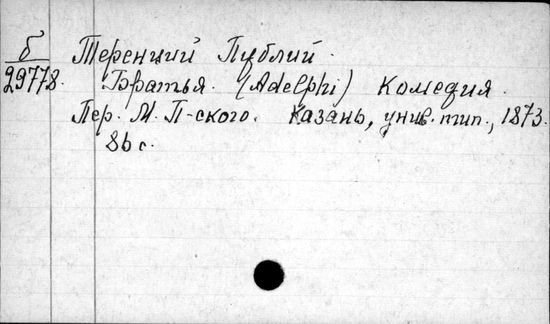 б Теренций Публий.
29778. Братья. (Adelphi) Комедия.
Пер. М. П-ского. Казань, унив. тип., 1873.
86 с.